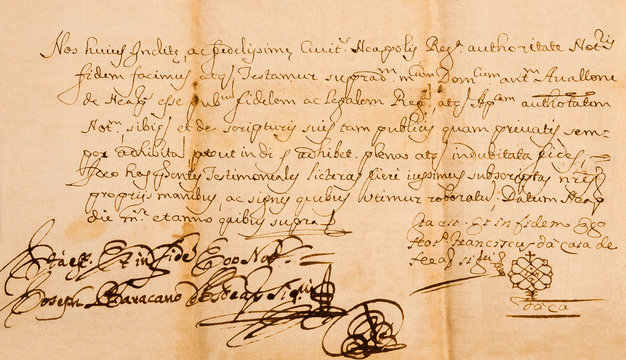 Nos huius Inclitę, ac fidelissimę Civit.s Neapolis Reg.a authoritate Not.rij
fidem facimus, atq3 Testamur suprad.m m.cum Dom.cum ant.m Avallone
de Neap esse pub.cum fidelem ac legalem Reg., atq3 Ap.cam authoritatem
Not.m, sibiq3 et de scripturis suis tam publicis quam privatis sem=
per adhibita, prout in di s adhibet plenas atq3 indubitata fides,
has p̄ntes Testimoniales licteras fieri iussimus subscriptas nr̄is
proprijs manibus, ac signis quibus utimur roboratas Datum Neap
die m.se et anno quibus supra
Ita est Et in fidem Ego
Not.s Franciscus da Casa de
Neap sig.vi
Ita est, Et in fide Ego Not.
Joseph Maracano de Neap sig.vi